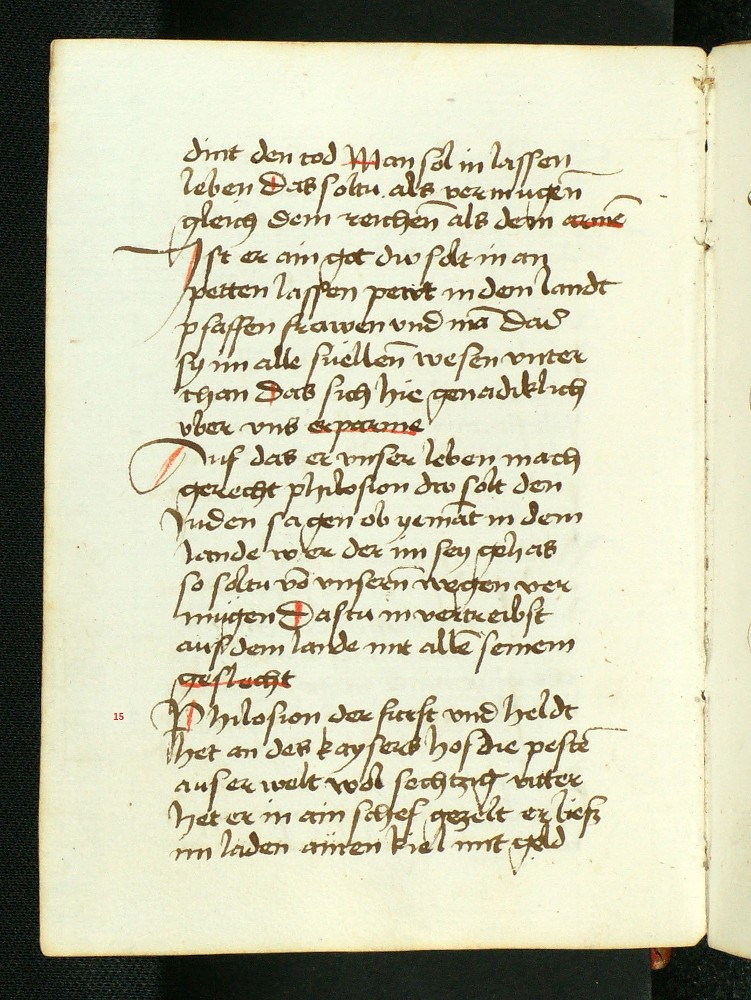 dint den tod Man sol in lassen
leben Das soltu als vermugen̄
gleich dem reichen̄ als dem armē
Ist er ain got dw solt in an
petten lassen pewt in dem landt
pfaffen frawen vnd mā das
sy im alle suellen̄ wesen vnter
than Das sich hie genadiklich
vber vns erparme
Auf das er vnser leben mach
gerecht philosion dw solt den
Juden sagen ob yemāt in dem
lande wer der im sey gehas
so soltu vō vnsern̄ wegen ver
mugen Dastu in vertreibst
aus dem lande mit allē seinem
geslecht
15 Philosion der furst vnd heldt
het an des kaysers hof die pestē
auser welt wol sechtzig ritter
het er in ain schef gezelt er liesz
im laden ainen kiel mit geld